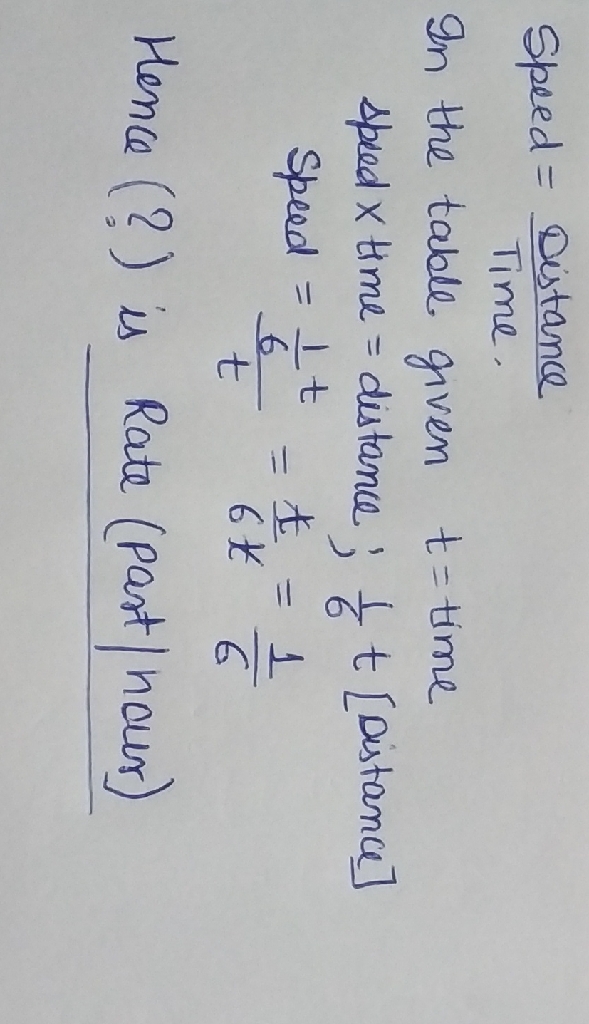 Speed = Distance / Time.
In the table given t = time
speed x time = distance ; 1/6 t [Distance]
Speed = 1/6 t / t = t/6t = 1/6
Hence (?) is Rate (Part/hour)